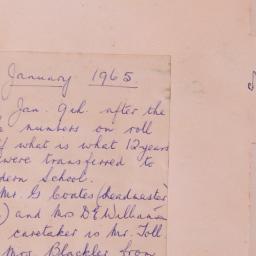 January 1965.
Jan. 9th. after the
numbers on roll
if what is what 12 years
were transferred to
dern School.
Mr. G Coates (headmaster
) and Mrs D E Williamson
caretaker is Mr. Toll
Mrs Blackler from